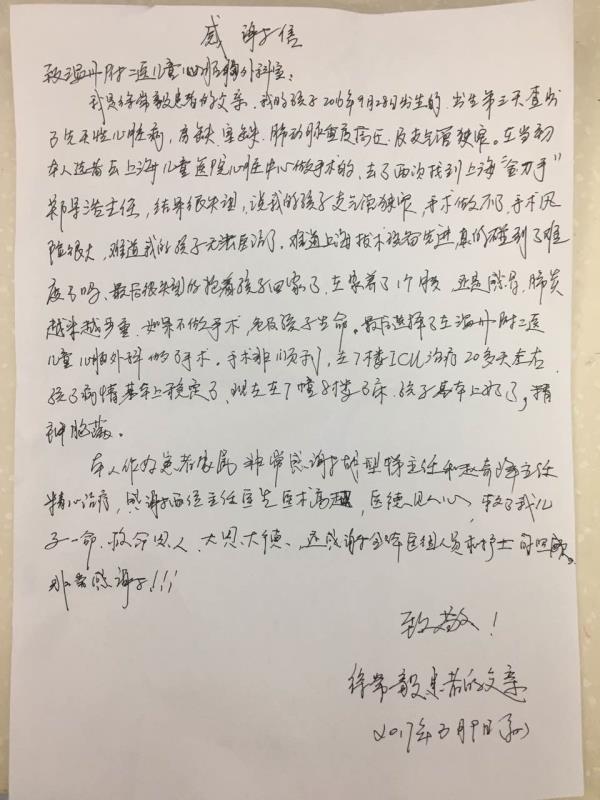 感谢信
致温州附二医儿童心脏胸外科室:
我是徐常毅患者的父亲,我的孩子2016年9月28日出生的,出生第三天查出
了先天性心脏病,房缺.室缺.肺动脉重度高压.及支气管狭窄。在当初
本人选着去上海儿童医院心脏中心做手术的,去了两次找到上海“金刀手”
郑景浩主任,结果很失望,说我的孩子支气管狭窄,手术做不了,手术风
险很大,难道我的孩子无法医治了。难道上海技术设备先进,真的碰到了难
度了吗、最后很失望的抱着孩子回家了,在家养了1个月,还是感冒,肺炎
越来越严重,如果不做手术,危及孩子生命。最后选择了在温州附二医
儿童心胸外科做了手术。手术非常顺利,在7楼ICU治疗20多天左右
孩子病情基本上稳定了、现在在7幢8楼了床、孩子基本上好了,精
神饱满。
本人作为患者家属 非常感谢胡型锑主任和赵奇峰主任
精心治疗,感谢两位主任医生医术高超,医德见人心,救了我儿
子一命,救命恩人、大恩大德、还感谢全体医组人员和护士的照顾。
非常感谢!!!
致敬!
徐常毅患者的父亲
2017年3月9日